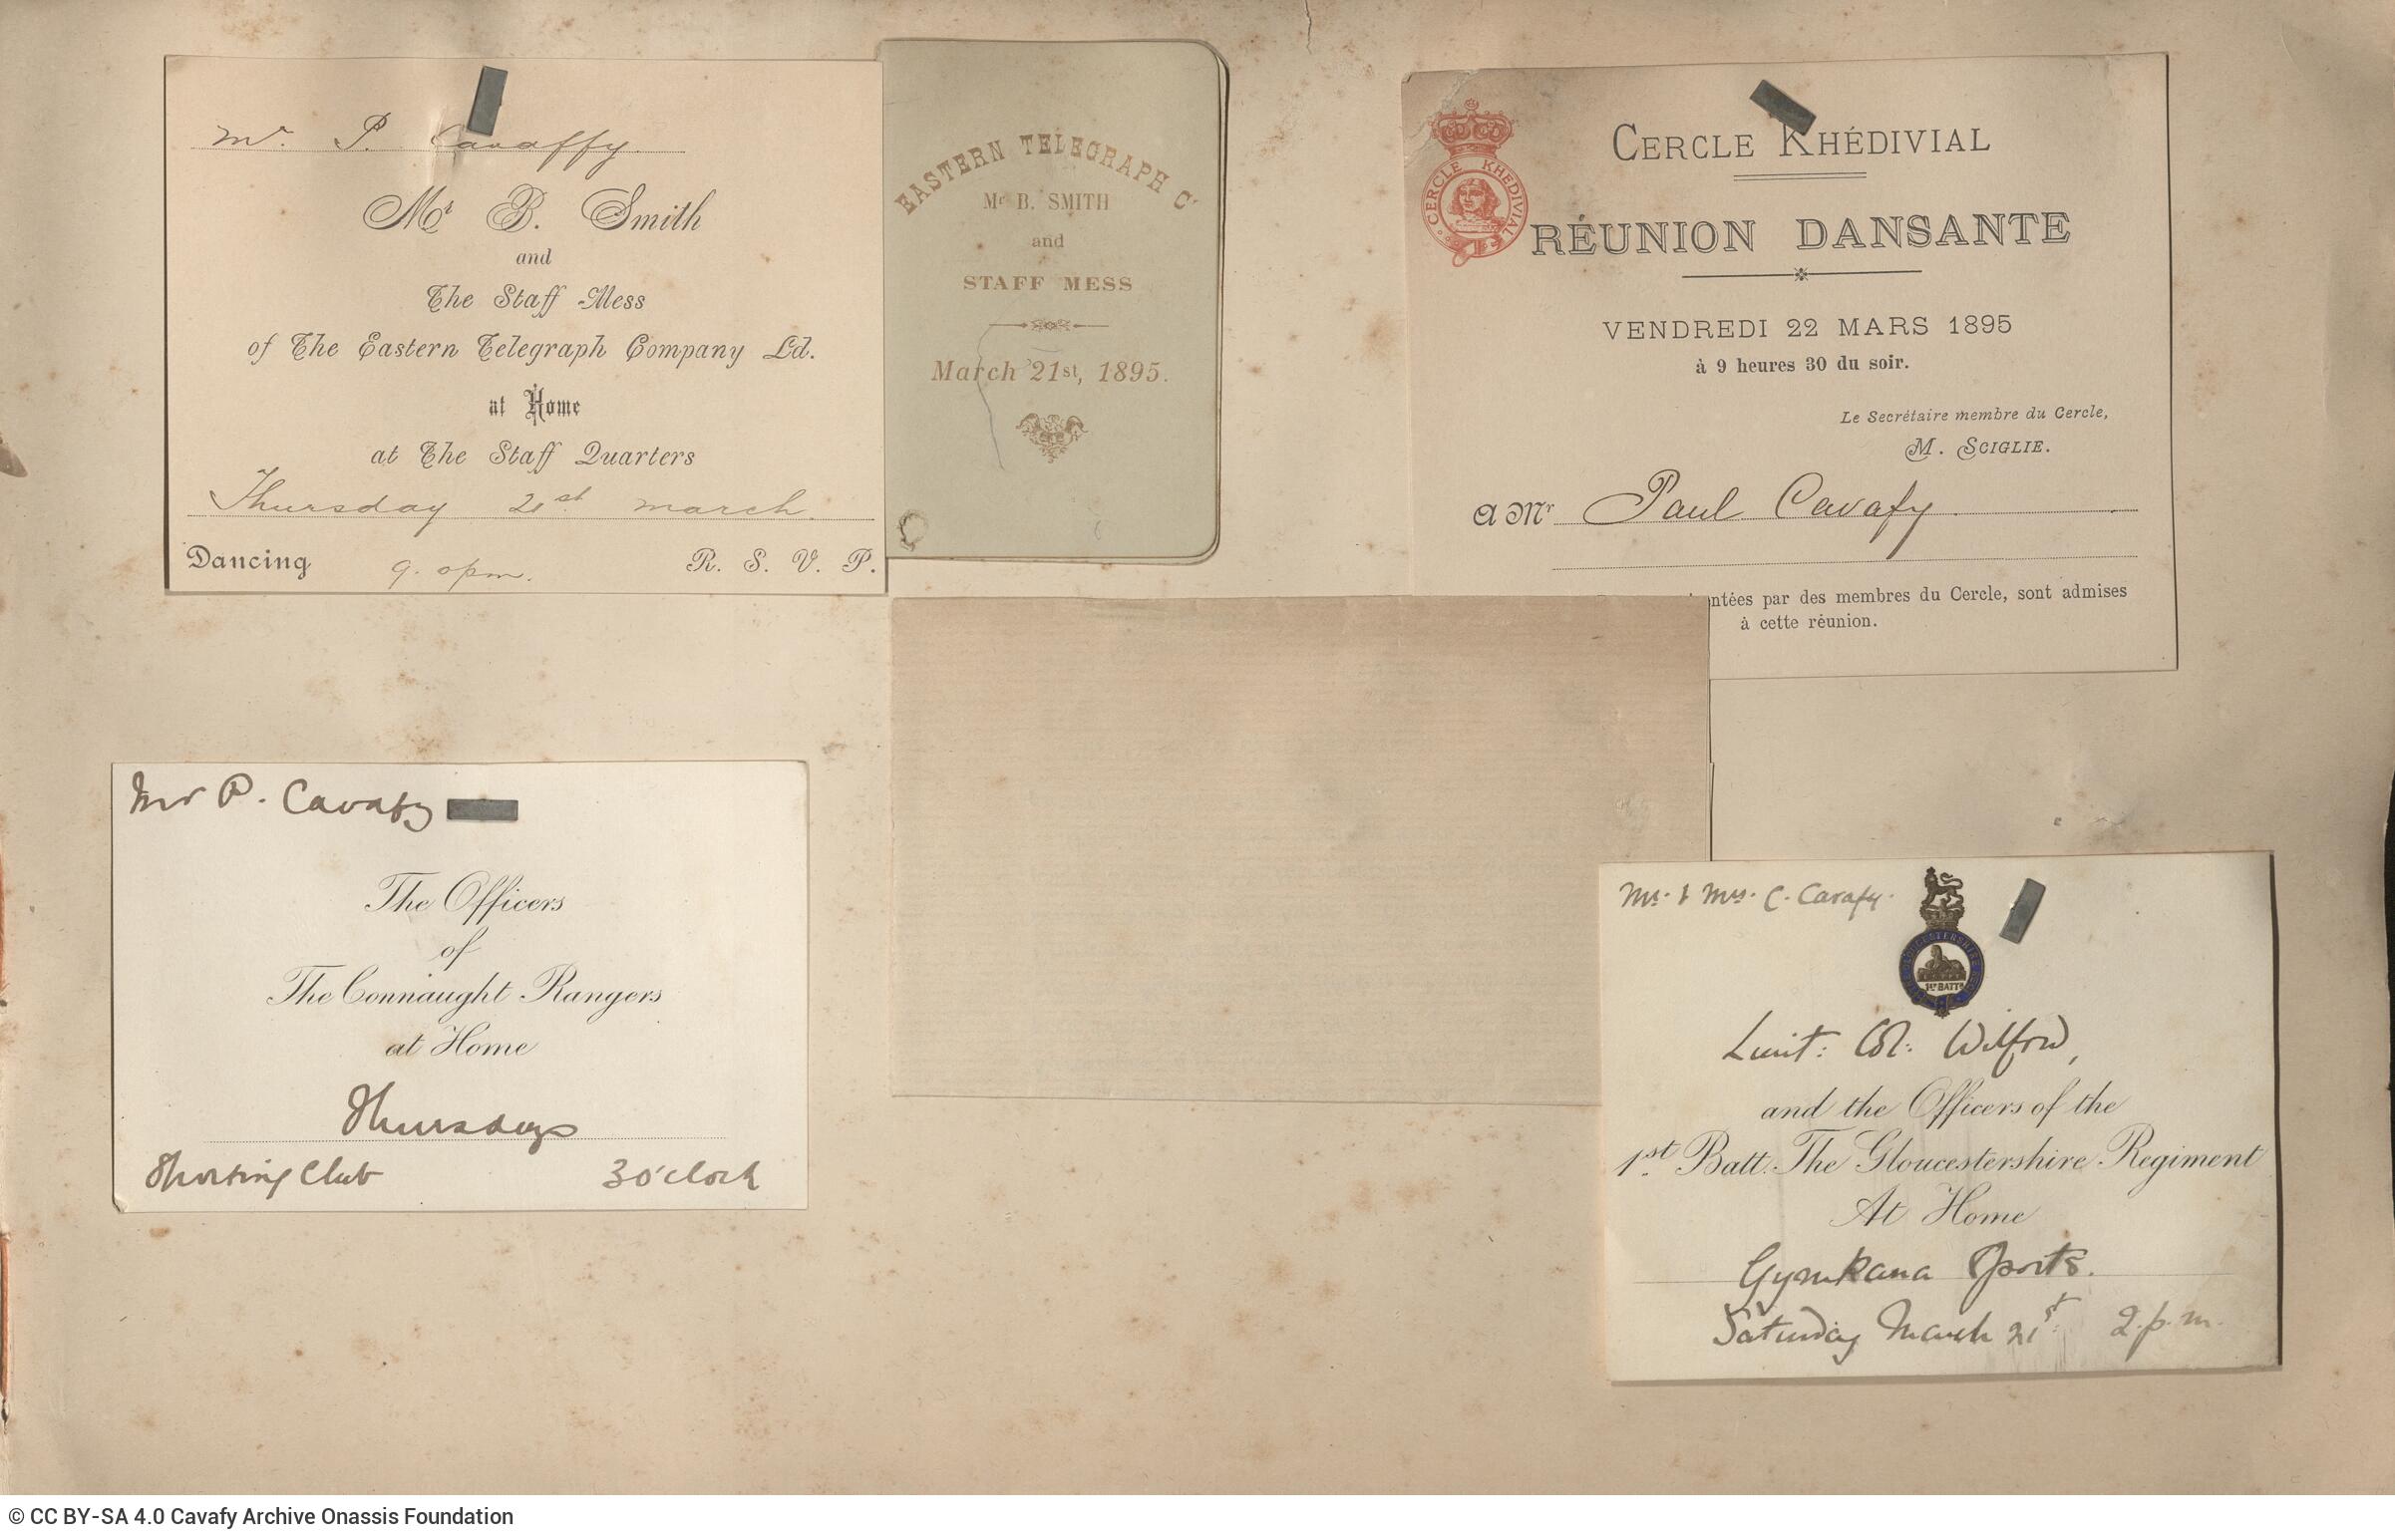 Mr. P. Cavaffy
Mr B. Smith
and
The Staff Mess
of The Eastern Telegraph Company Ld.
at Home
at The Staff Quarters
Thursday 21st march.
Dancing 9. opm. R. S. V. P.
EASTERN TELEGRAPH Co
Mr B. SMITH
and
STAFF MESS
March 21st, 1895.
CERCLE KHÉDIVIAL
CERCLE KHÉDIVIAL
RÉUNION DANSANTE
VENDREDI 22 MARS 1895
à 9 heures 30 du soir.
Le Secrétaire membre du Cercle,
M. SCIGLIE.
A Mr Paul Cavafy
ntées par des membres du Cercle, sont admises
à cette réunion.
Mr P. Cavafy
The Officers
of
The Connaught Rangers
at Home
Thursdays
Sporting Club 3 o'clock
Mr. & Mrs. C. Cavafy.
GLOUCESTERSHIRE
1st BATTn
Lieut: Col: Wilford,
and the Officers of the
1st Batt. The Gloucestershire Regiment
At Home
Gymkana Sports.
Saturday March 21st. 2.p.m.
© CC BY-SA 4.0 Cavafy Archive Onassis Foundation